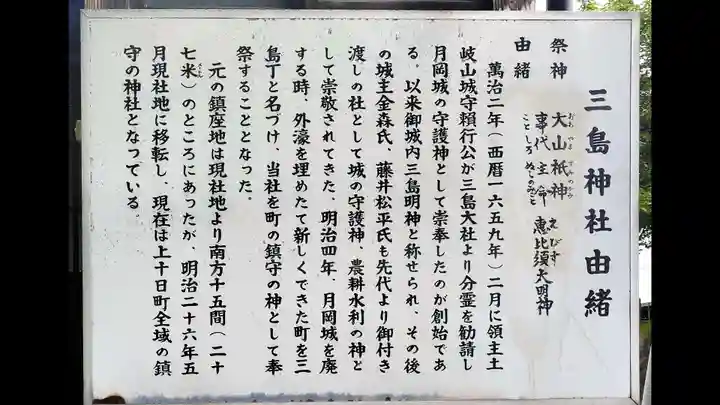 三島神社由緒
祭神 大山祇神
事代主命 恵比須大明神
おおやまずみのかみ
ことしろぬしのみこと えびす
由緒
萬治二年（西暦一六五九年）二月に領主土
岐山城守頼行公が三島大社より分霊を勧請し
月岡城の守護神として崇奉したのが創始であ
る、以来御城内三島明神と称せられ、その後
の城主金森氏、藤井松平氏も先代より御付き
渡しの社として城の守護神、農耕水利の神と
して崇敬されてきた、明治四年、月岡城を廃
する時、外濠を埋めたて新しくできた町を三
島丁と名づけ、当社を町の鎮守の神として奉
祭することとなった。
元の鎮座地は現社地より南方十五間（二十
七米）のところにあったが、明治二十六年五
月現社地に移転し、現在は上十日町全域の鎮
守の神社となっている。